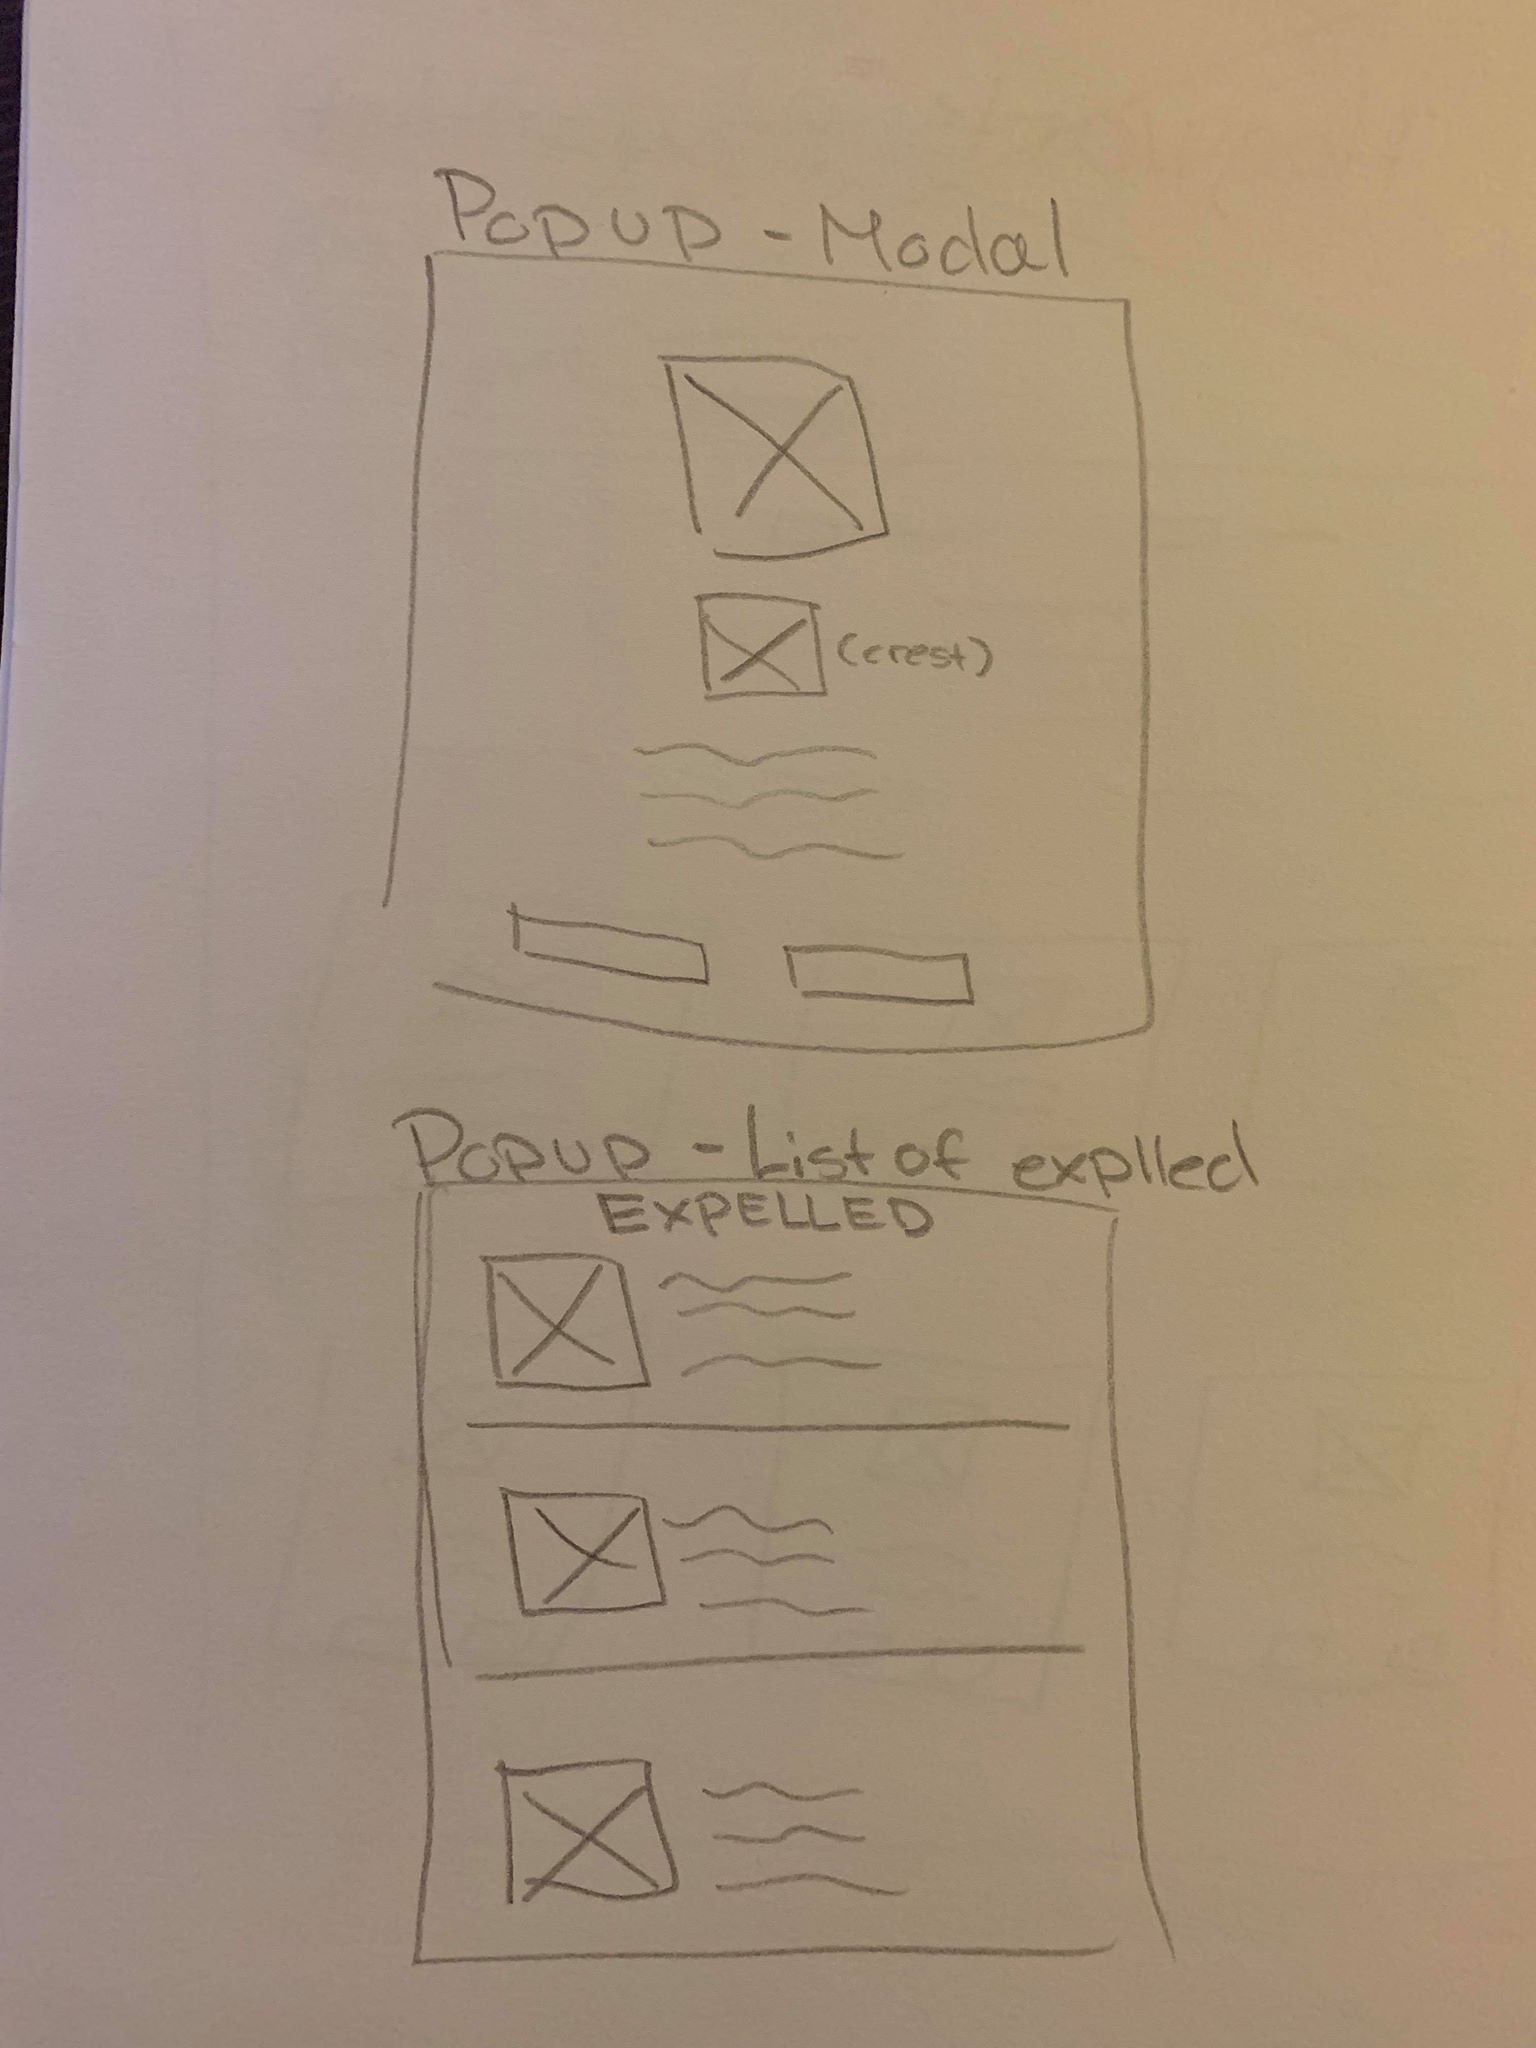 Popup - Modal
(crest)
Popup - List of explled
EXPELLED